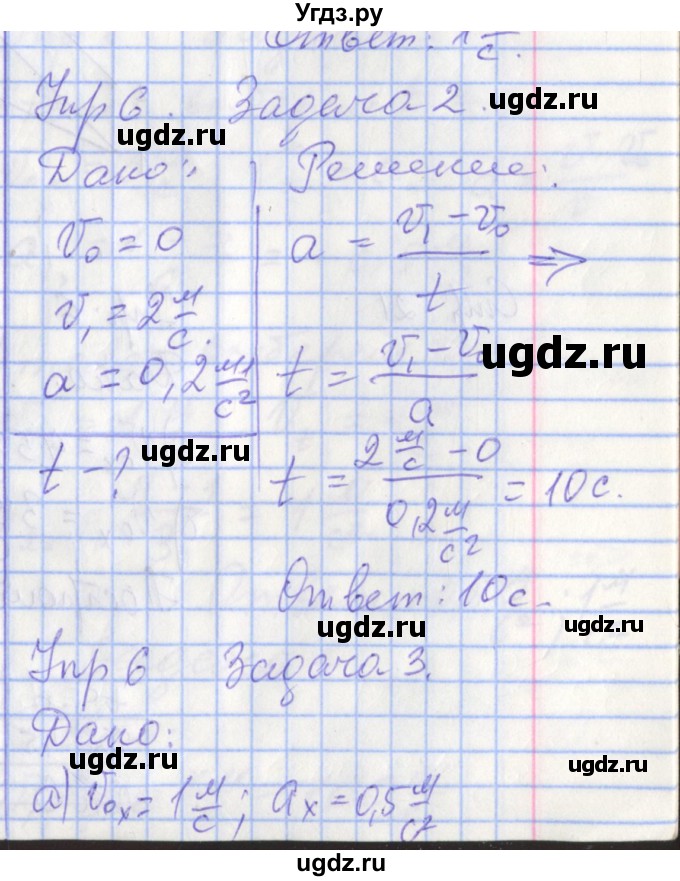 Угдз.ру
Ответ: 1 м/с.
Упр 6. Задача 2.
ugdz.ru ugdz.ru
Дано: Решение:
v₀ = 0 a = (v₁ - v₀)/t ⇒
v₁ = 2 м/с.
ugdz.ru
a = 0,2 м/с² t = (v₁ - v₀)/a
ugdz.ru
t - ? t = (2 м/с - 0)/(0,2 м/с²) = 10 с.
Ответ: 10 с.
ugdz.ru ugdz.ru
Упр 6 Задача 3.
Дано:
ugdz.ru ugdz.ru
а) v₀ₓ = 1 м/с; aₓ = 0,5 м/с²
ugdz.ru